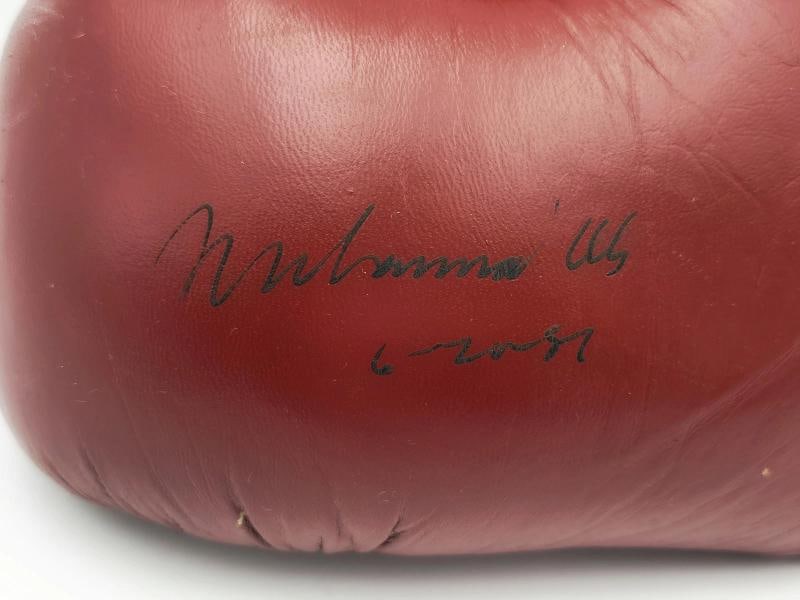 Muhammad Ali
6-20-87